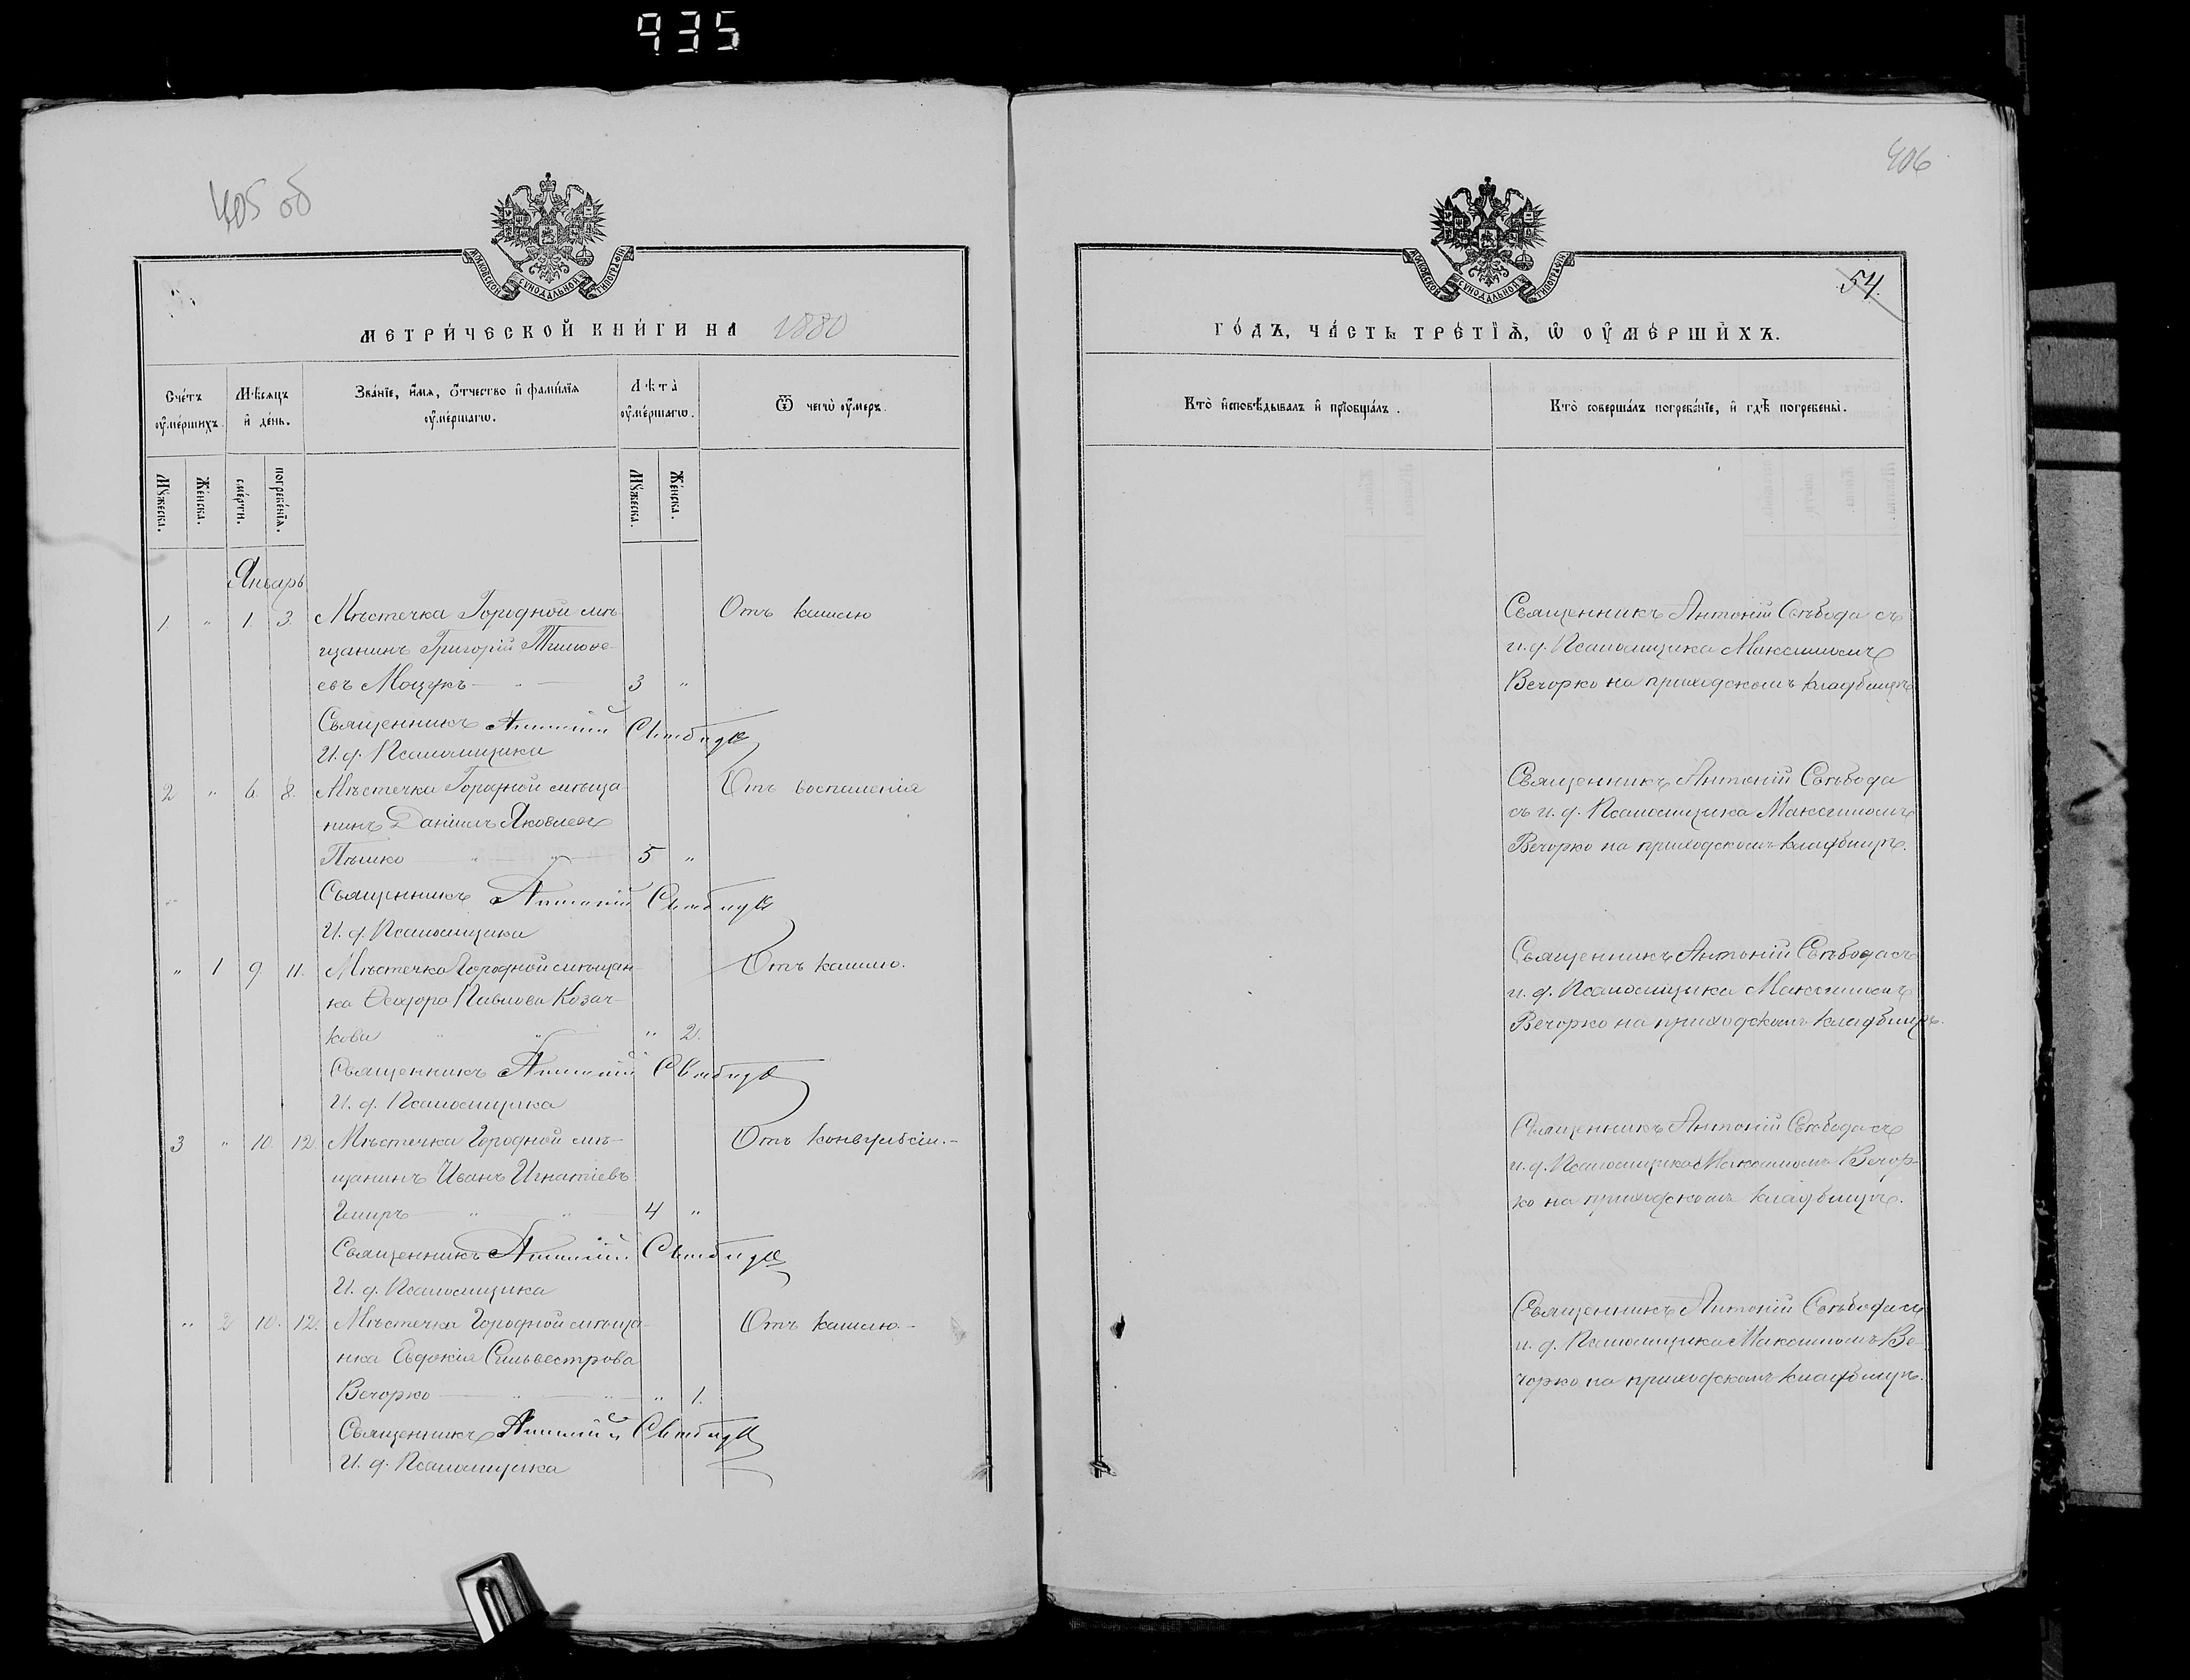 935
405 об
МОСКОВСКОЙ СѴНОДАЛЬНОЙ ТИПОГРАФІИ
МЕТРИ́ЧЕСКОЙ КНИ́ГИ НА 1880
Сче́тъ оу҆ме́ршихъ.
Мѣ́сяцъ и҆ де́нь.
Зва́нїе, и҆́мя, ѻ҆́тчество и҆ фами́лїя оу҆ме́ршагѡ.
Лѣта̀ оу҆ме́ршагѡ.
Ѿ чегѡ̀ оу҆́меръ.
Мꙋ́жеска.
Же́нска.
сме́рти.
погребе́нїѧ.
Мꙋ́жеска.
Же́нска.
Январь
1 " 1. 3. Мѣстечка Городной мѣ- Отъ кашлю
щанинъ Григорій Тимофе-
евъ Моцукъ — " — 3 "
Священникъ Антоній Свѣбода
И. д. Псаломщика
2 " 6. 8. Мѣстечка Городной мѣща Отъ воспаленія
нинъ Даніилъ Яковлевъ
Пѣшко — " — " — 5 "
Священникъ Антоній Свѣбода
И. д. Псаломщика
" 1 9 11. Мѣстечка Городной мѣщан- Отъ кашлю.
ка Ѳеодора Павлова Козач-
кова " " " 2.
Священникъ Антоній Свѣбода
И. д. Псаломщика
3 " 10. 12. Мѣстечка Городной мѣ- Отъ конвульсіи.-
щанинъ Иванъ Игнатіевъ
— " — " — 4 "
Священникъ Антоній Свѣбода
И. д. Псаломщика
" 2 10. 12. Мѣстечка Городной мѣща- Отъ кашлю.-
нка Евдокія Сильвестрова
Вечорко — " — " — " 1.
Священникъ Антоній Свѣбода
И. д. Псаломщика
406
54.
МОСКОВСКОЙ СѴНОДАЛЬНОЙ ТИПОГРАФІИ
ГО́ДЪ, ЧА́СТЬ ТРЕ́ТЇѦ, Ѡ҆ ОУ҆МЕ́РШИХЪ.
Кто̀ и҆сповѣ́дывалъ и҆ прїобща́лъ.
Кто̀ соверша́лъ погребе́нїе, и҆ гдѣ̀ погребены̀.
Священникъ Антоній Свѣбода съ
и. д. Псаломщика Максимомъ
Вечорко на приходскомъ кладбищѣ
Священникъ Антоній Свѣбода
съ и. д. Псаломщика Максимомъ
Вечорко на приходскомъ кладбищѣ.
Священникъ Антоній Свѣбода съ
и. д. Псаломщика Максимомъ
Вечорко на приходскомъ кладбищѣ.
Священникъ Антоній Свѣбода съ
и. д. Псаломщика Максимомъ Вечор-
ко на приходскомъ кладбищѣ.
Священникъ Антоній Свѣбода съ
и. д. Псаломщика Максимомъ Ве-
чорко на приходскомъ кладбищѣ.